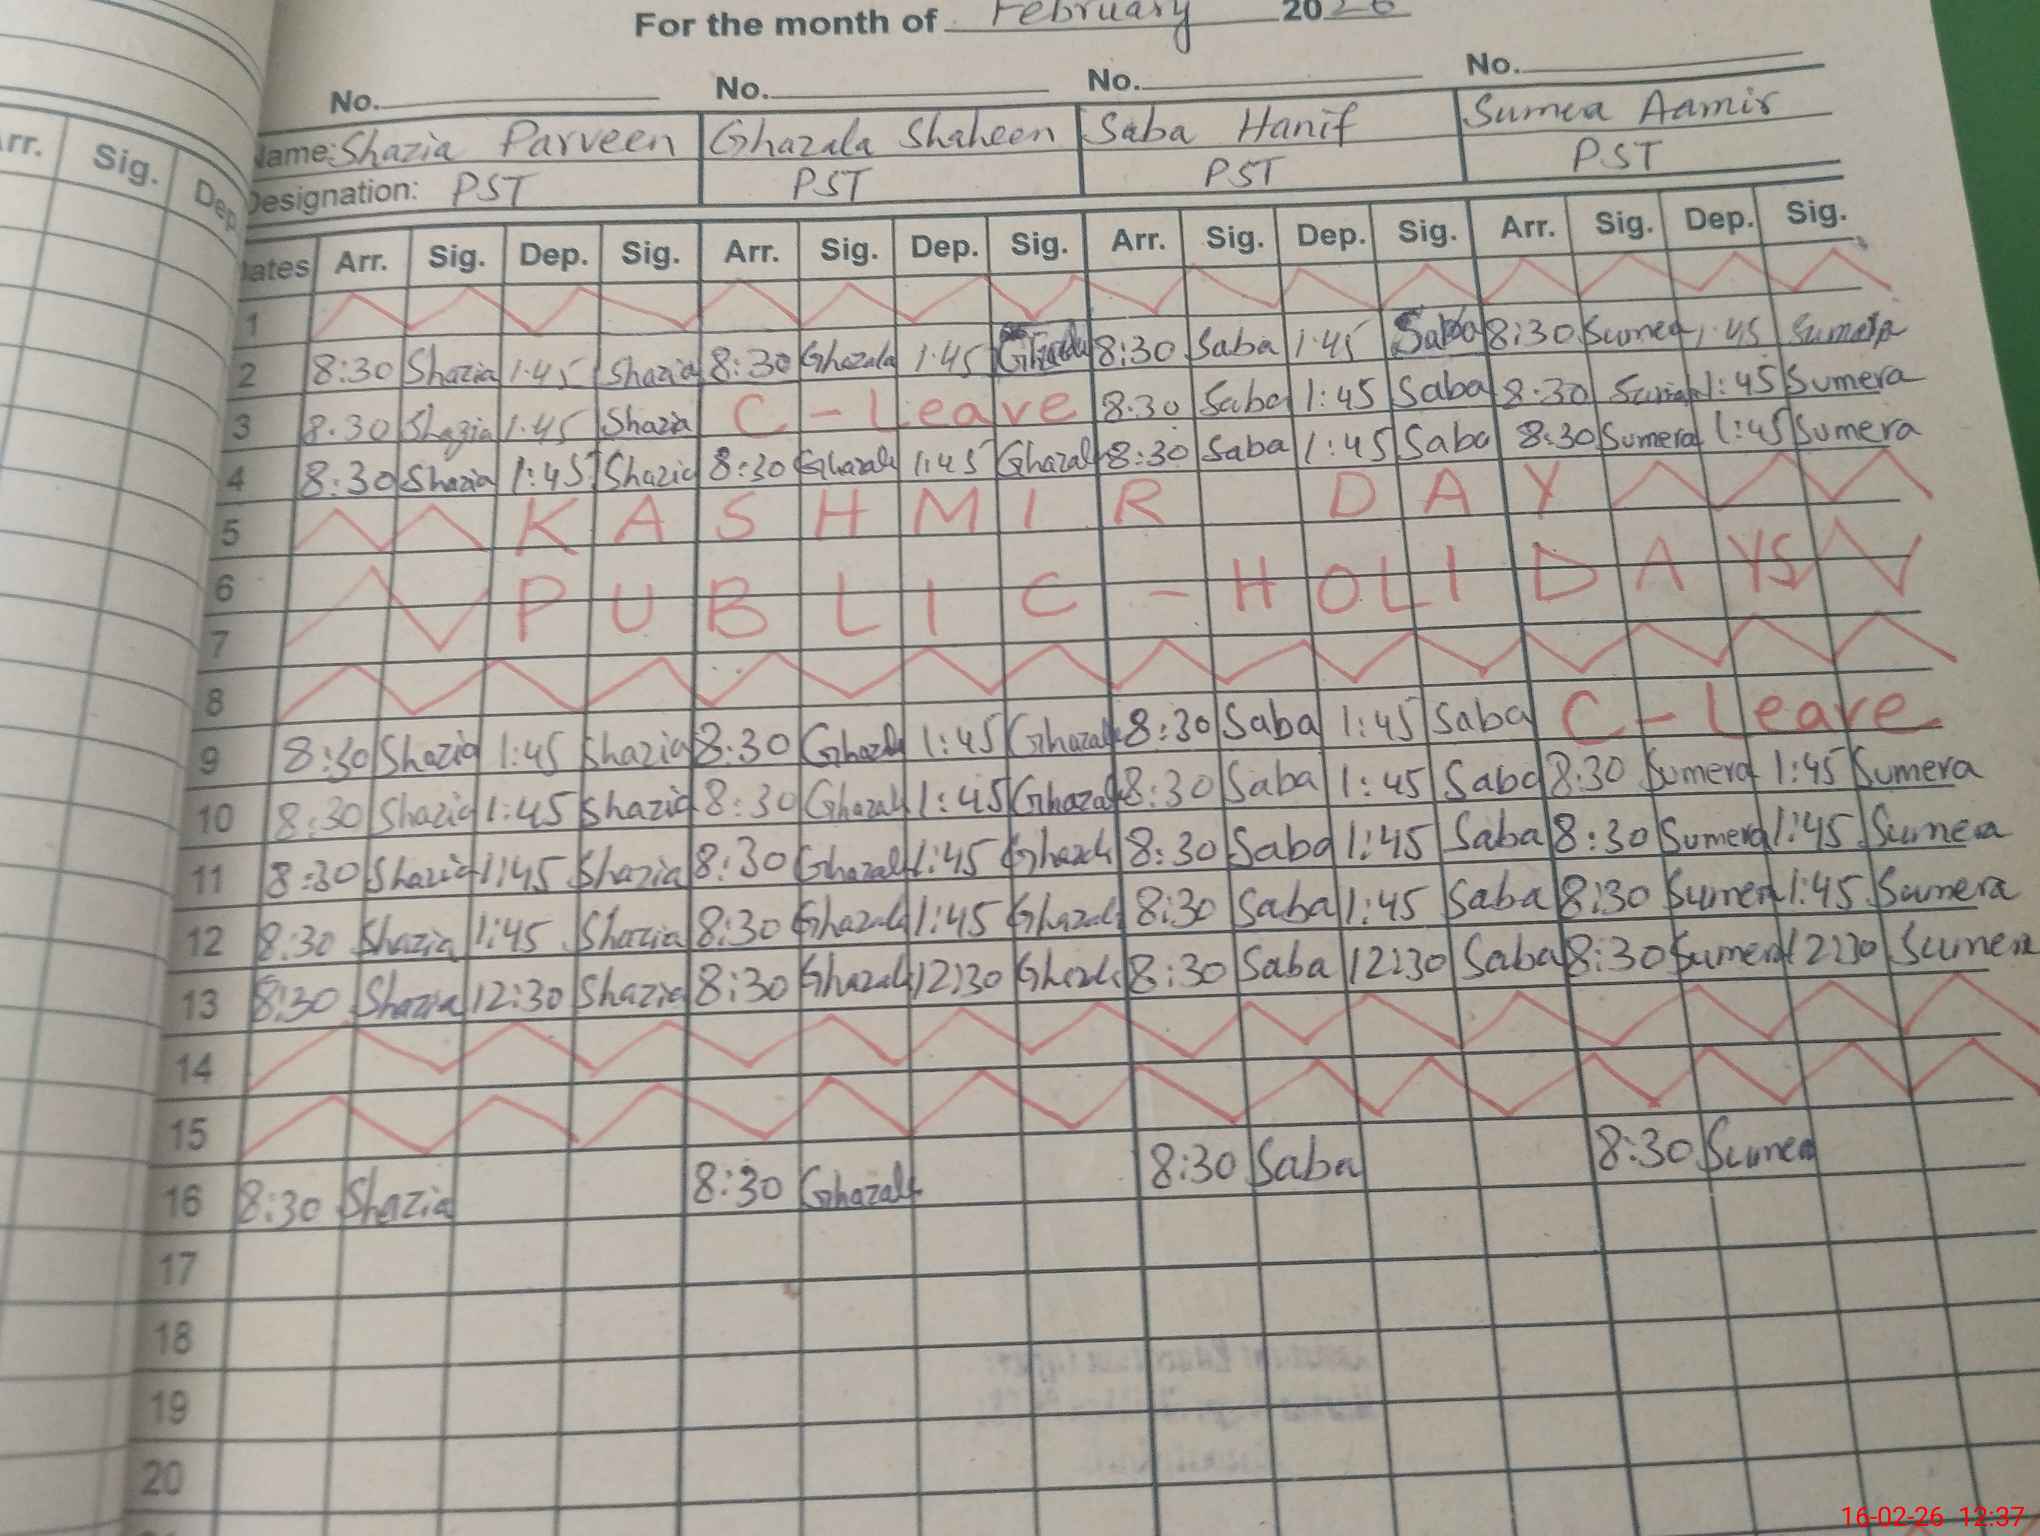 For the month of February 2026
No. No. No. No.
Name: Shazia Parveen Ghazala Shaheen Saba Hanif Sumera Aamir
Designation: PST PST PST PST
rr. Sig. Dep
ates Arr. Sig. Dep. Sig. Arr. Sig. Dep. Sig. Arr. Sig. Dep. Sig. Arr. Sig. Dep. Sig.
1
2 8:30 Shazia 1:45 Shazia 8:30 Ghazala 1:45 8:30 Saba 1:45 Saba 8:30 Sumera 1:45 Sumera
3 8:30 Shazia 1:45 Shazia C - Leave 8:30 Saba 1:45 Saba 8:30 Sumera 1:45 Sumera
4 8:30 Shazia 1:45 Shazia 8:30 Ghazala 1:45 Ghazala 8:30 Saba 1:45 Saba 8:30 Sumera 1:45 Sumera
5 KASHMIR DAY
6
PUBLIC - HOLIDAYS
7
8
9 8:30 Shazia 1:45 Shazia 8:30 Ghazala 1:45 Ghazala 8:30 Saba 1:45 Saba C - Leave
10 8:30 Shazia 1:45 Shazia 8:30 Ghazala 1:45 Ghazala 8:30 Saba 1:45 Saba 8:30 Sumera 1:45 Sumera
11 8:30 Shazia 1:45 Shazia 8:30 Ghazala 1:45 Ghazala 8:30 Saba 1:45 Saba 8:30 Sumera 1:45 Sumera
12 8:30 Shazia 1:45 Shazia 8:30 Ghazala 1:45 Ghazala 8:30 Saba 1:45 Saba 8:30 Sumera 1:45 Sumera
13 8:30 Shazia 12:30 Shazia 8:30 Ghazala 12:30 Ghazala 8:30 Saba 12:30 Saba 8:30 Sumera 12:30 Sumera
14
15
16 8:30 Shazia 8:30 Ghazala 8:30 Saba 8:30 Sumera
17
18
19
20
16-02-26 12:37